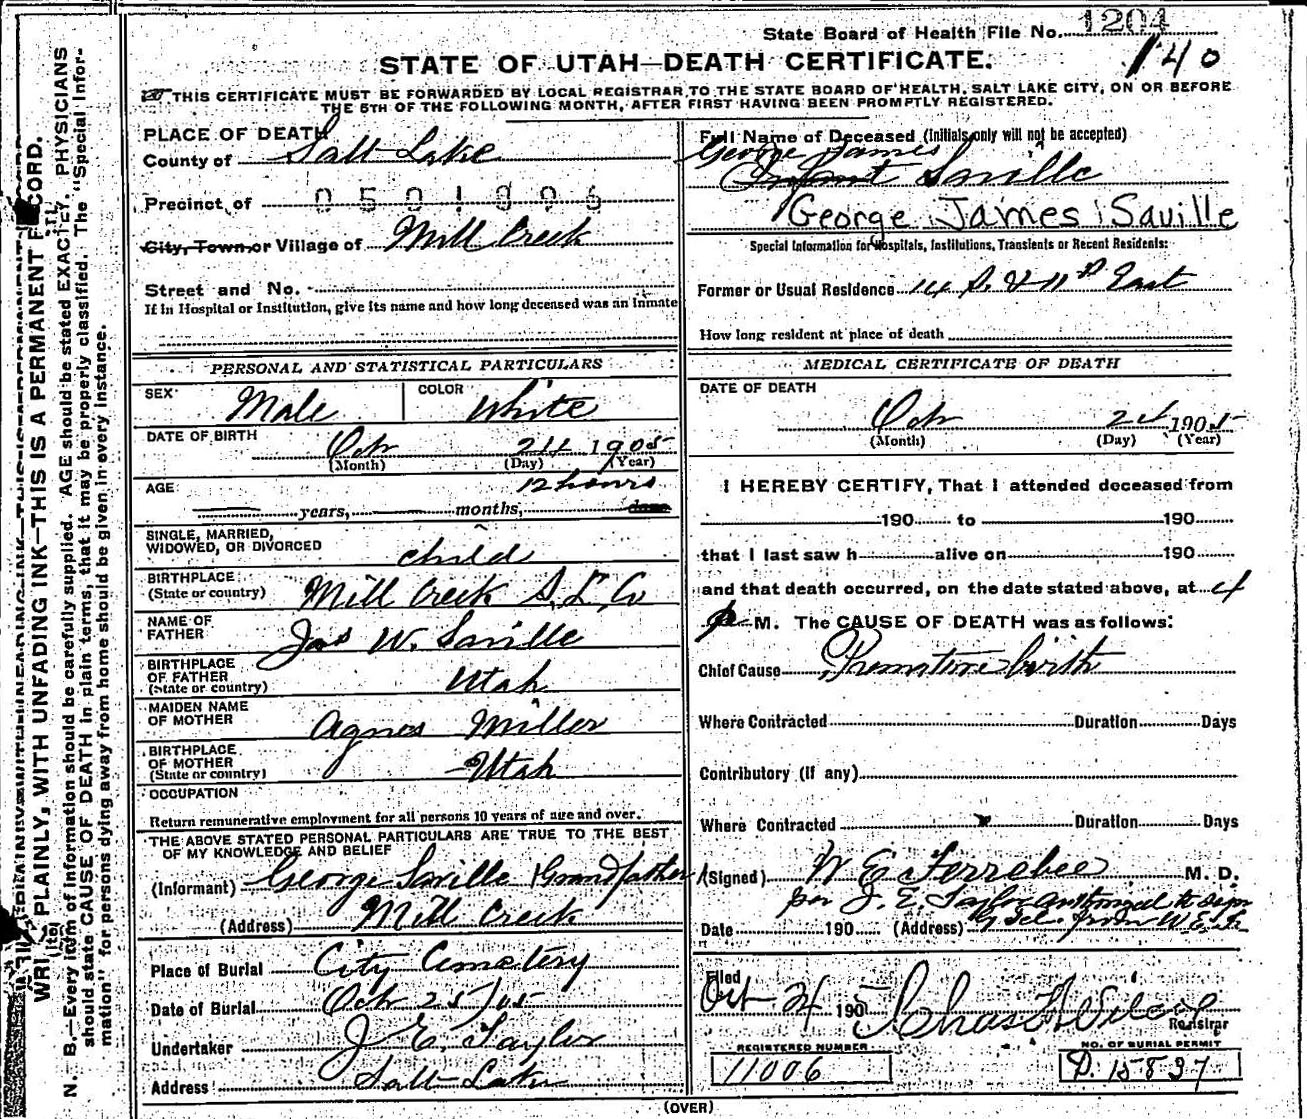 State Board of Health File No. 1204
140
STATE OF UTAH—DEATH CERTIFICATE.
THIS CERTIFICATE MUST BE FORWARDED BY LOCAL REGISTRAR TO THE STATE BOARD OF HEALTH, SALT LAKE CITY, ON OR BEFORE
THE 5TH OF THE FOLLOWING MONTH, AFTER FIRST HAVING BEEN PROMPTLY REGISTERED.
PLACE OF DEATH
County of Salt Lake
Precinct of 0501896
City, Town or Village of Mill Creek
Street and No.
If in Hospital or Institution, give its name and how long deceased was an Inmate
Full Name of Deceased (Initials only will not be accepted)
George James
Infant Saville
George James Saville
Special Information for Hospitals, Institutions, Transients or Recent Residents:
Former or Usual Residence 14 S. & 11th East
How long resident at place of death
PERSONAL AND STATISTICAL PARTICULARS
SEX Male COLOR White
DATE OF BIRTH Oct 24 1905
(Month) (Day) (Year)
AGE 12 hours
years, months, days
SINGLE, MARRIED,
WIDOWED, OR DIVORCED child
BIRTHPLACE
(State or country) Mill Creek S. L. Co
NAME OF
FATHER Jas W. Saville
BIRTHPLACE
OF FATHER
(State or country) Utah
MAIDEN NAME
OF MOTHER Agnes Miller
BIRTHPLACE
OF MOTHER
(State or country) Utah
OCCUPATION
Return remunerative employment for all persons 10 years of age and over.
THE ABOVE STATED PERSONAL PARTICULARS ARE TRUE TO THE BEST
OF MY KNOWLEDGE AND BELIEF
(Informant) George Saville Grandfather
(Address) Mill Creek
Place of Burial City Cemetery
Date of Burial Oct 25/05
Undertaker J. E. Taylor
Address Salt Lake
MEDICAL CERTIFICATE OF DEATH
DATE OF DEATH
Oct 24 1905
(Month) (Day) (Year)
I HEREBY CERTIFY, That I attended deceased from
190 to 190
that I last saw h alive on 190
and that death occurred, on the date stated above, at 4
p M. The CAUSE OF DEATH was as follows:
Chief Cause Premature birth
Where Contracted Duration Days
Contributory (if any)
Where Contracted Duration Days
(Signed) W E Ferrebee M. D.
per J. E. Taylor authorized to sign
Date 190 (Address) by Tel. from W. E. F.
Filed
Oct 24 1905 Chas H Wilcox
Registrar
REGISTERED NUMBER
11006
NO. OF BURIAL PERMIT
D. 15837
(OVER)
WRITE PLAINLY, WITH UNFADING INK—THIS IS A PERMANENT RECORD.
N. B.—Every item of information should be carefully supplied. AGE should be stated EXACTLY. PHYSICIANS
should state CAUSE OF DEATH in plain terms, that it may be properly classified. The "Special Infor-
mation" for persons dying away from home should be given in every instance.